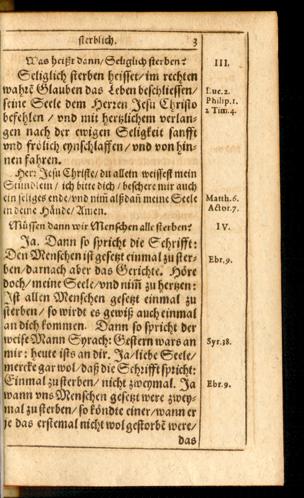 sterblich. 3
Was heißt dann/ Seliglich sterben? III.
Seliglich sterben heisset/ im rechten
wahrẽ Glauben das Leben beschliessen/ Luc.2.
seine Seele dem Herren Jesu Christo Philip.1.
befehlen/ vnd mit hertzlichem verlan- 2 Tim.4.
gen nach der ewigen Seligkeit sanfft
vnd frölich eynschlaffen/ vnd von hin-
nen fahren.
Herr Jesu Christe/ du allein weissest mein
Stündlein/ ich bitte dich/ beschere mir auch
ein seliges ende/ vnd nim̃ alßdañ meine Seele Matth.6.
in deine Hände/ Amen. Actor.7.
Müssen dann wir Menschen alle sterben? IV.
Ja. Dann so spricht die Schrifft:
Den Menschen ist gesetzt einmal zu ster-
ben/ darnach aber das Gerichte. Höre Ebr.9.
doch/ meine Seele/ vnd nim̃ zu hertzen:
Ist allen Menschen gesetzt einmal zu
sterben/ so wirdt es gewiß auch einmal
an dich kommen. Dann so spricht der
weise Mann Syrach: Gestern wars an
mir: heute ists an dir. Ja/ liebe Seele/ Syr.38.
mercke gar wol/ daß die Schrifft spricht:
Einmal zu sterben/ nicht zweymal. Ja Ebr.9.
wann vns Menschen gesetzt were zwey-
mal zu sterben/ so köndte einer/ wann er
je das erstemal nicht wol gestorbẽ were/
das